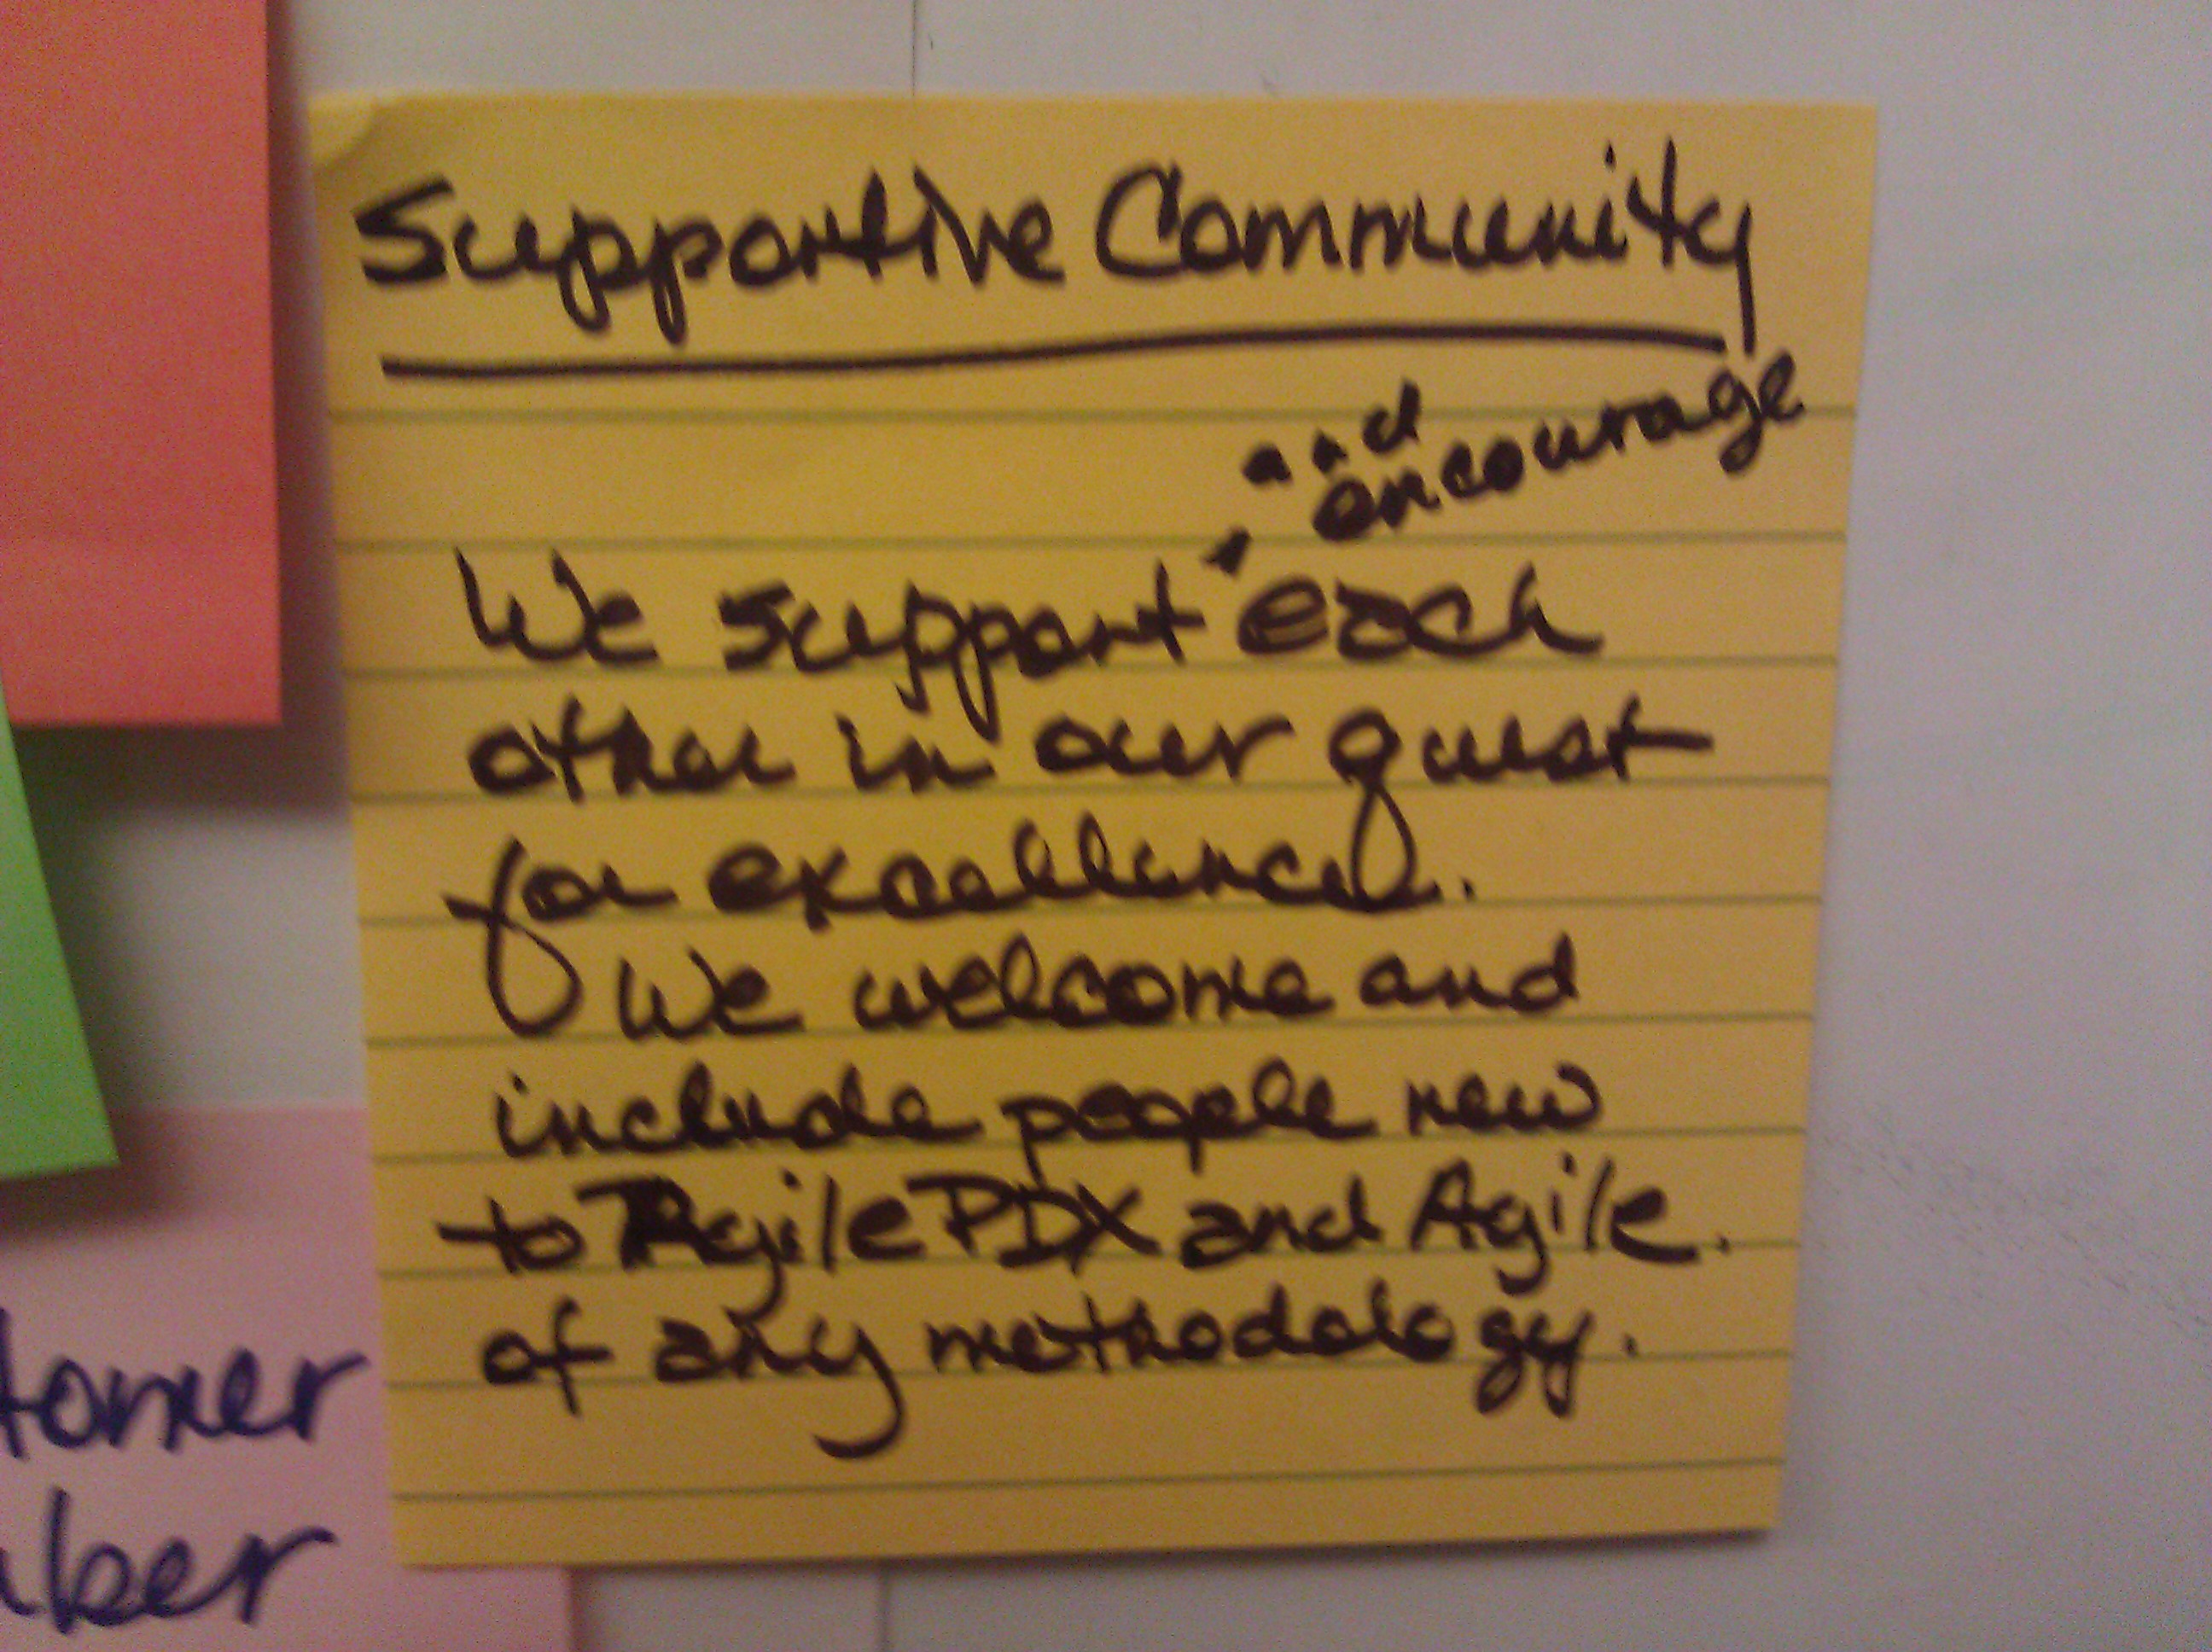 Supportive Community
and
encourage
We support each
other in our quest
for excellence.
We welcome and
include people new
to AgilePDX and Agile.
of any methodology.
tomer
ber